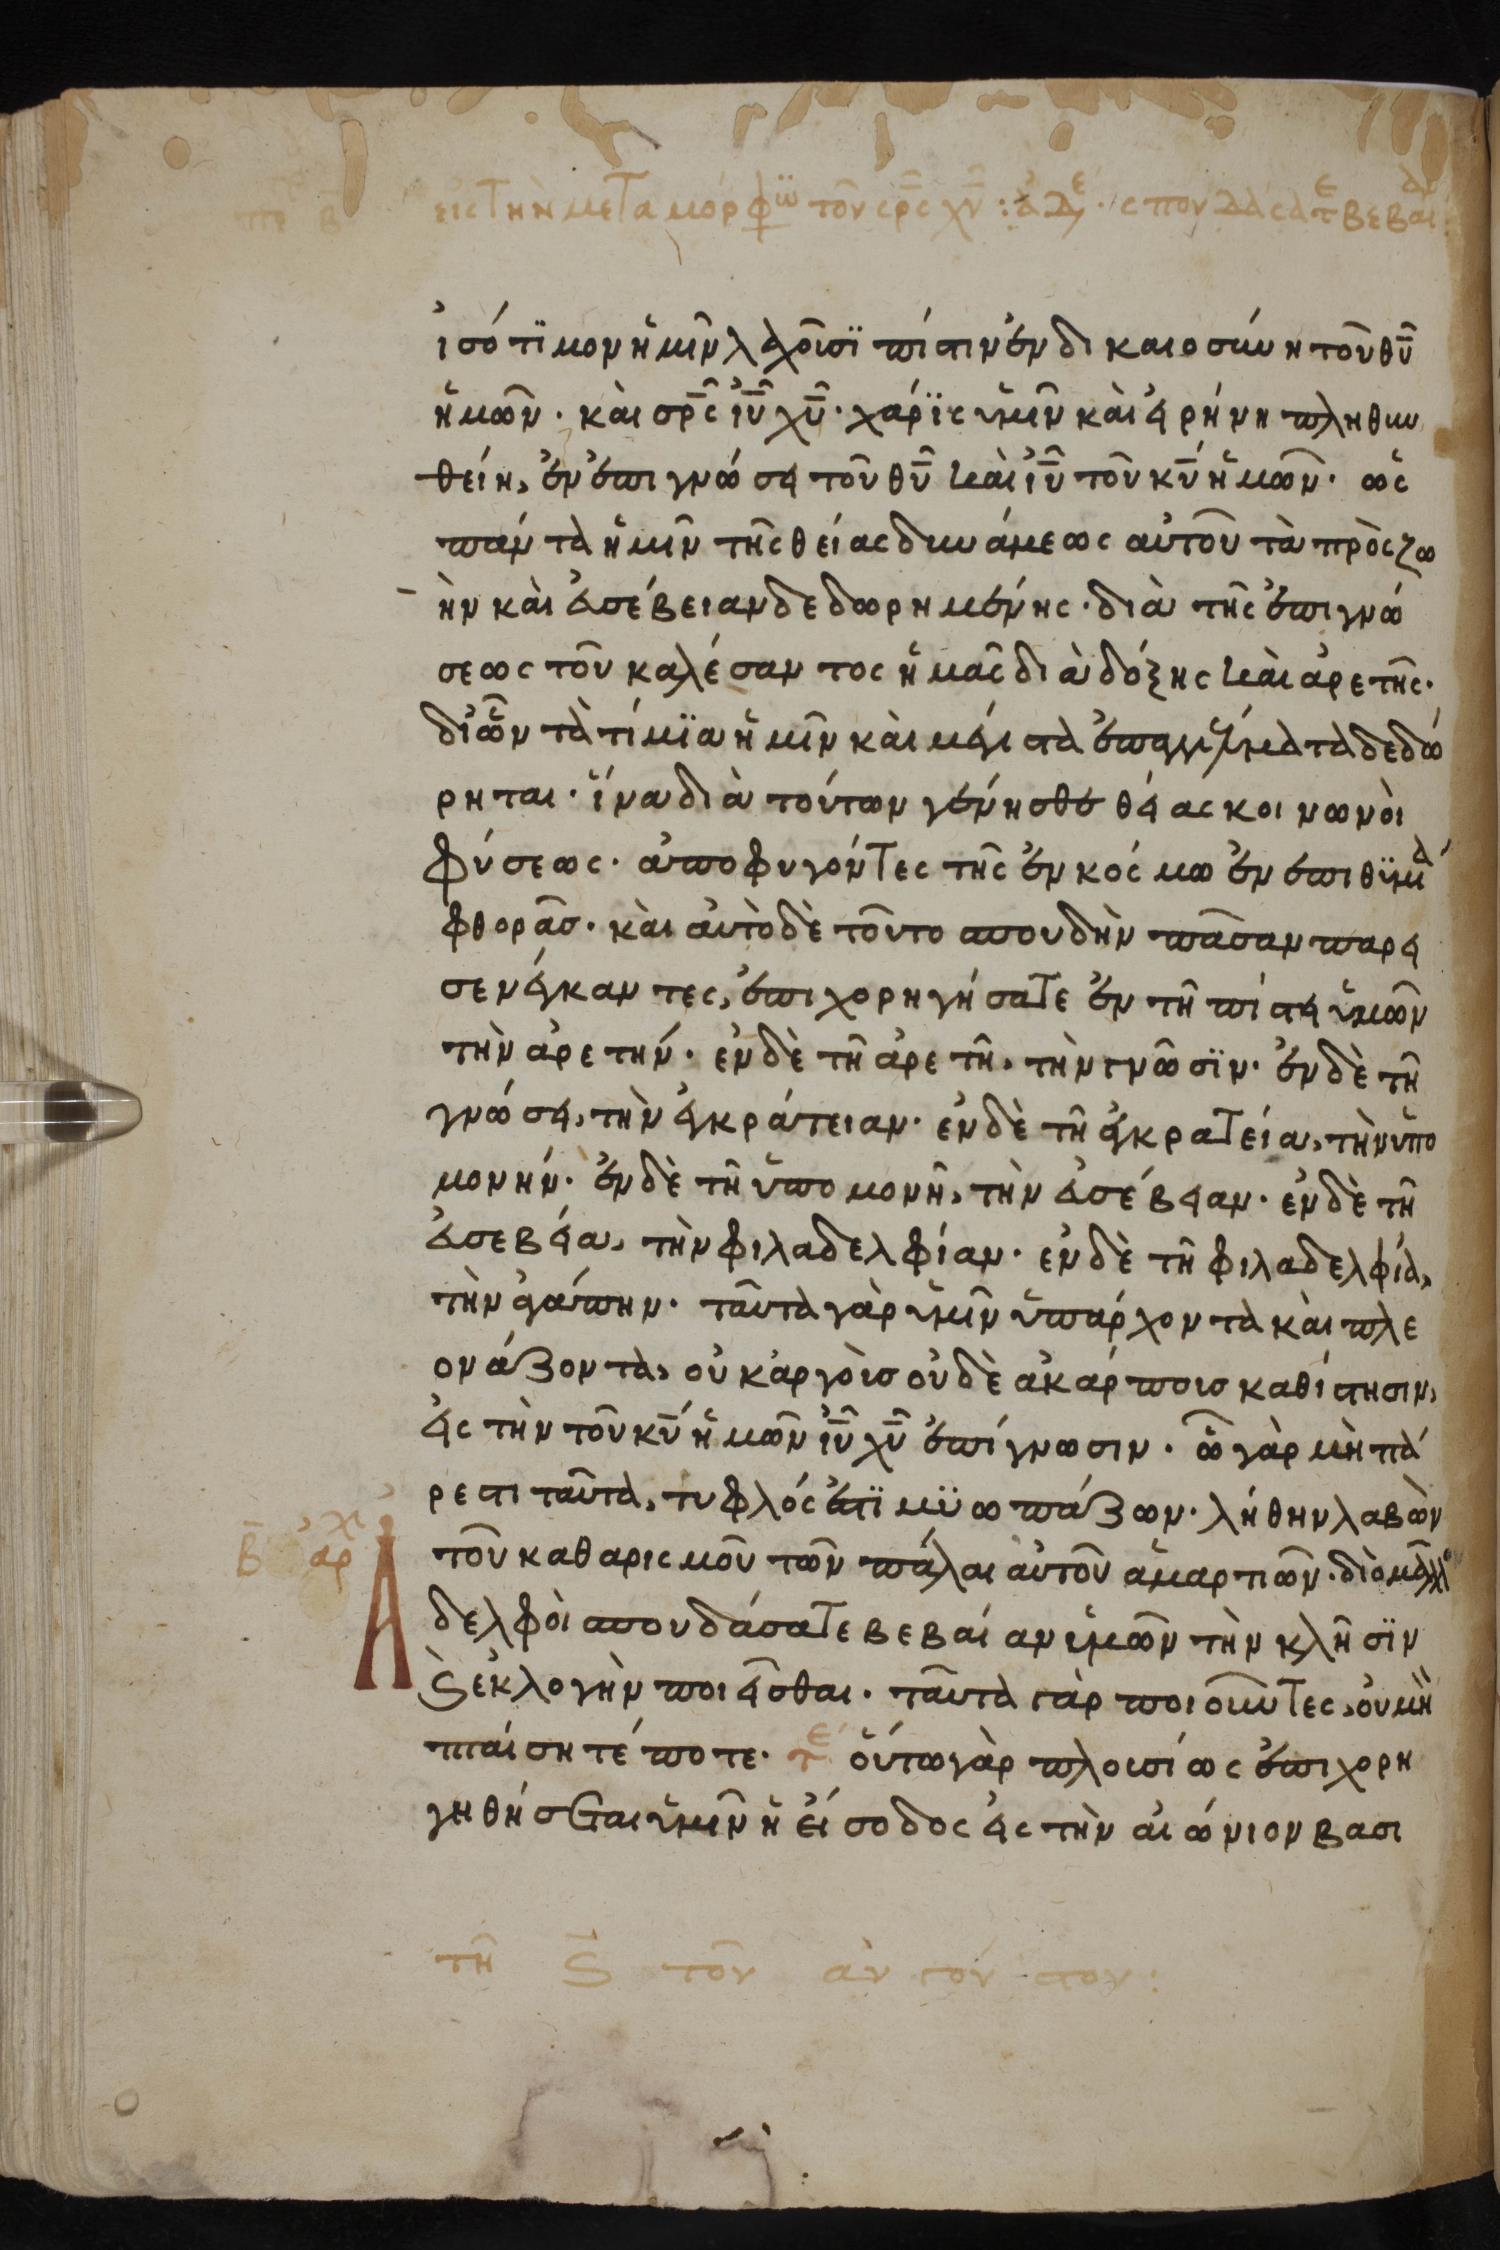 εἰς τὴν μεταμόρφω τοῦ σρ̅ς χυ̅ : ἀδε · σπουδάσατε βεβαι :
ἰσότϊμον ἡμῖν λαχοῦσϊ πίστιν ἐν δικαιοσύνη τοῦ θυ̅
ἡμῶν · καὶ σρ̅ς ιυ̅ χυ̅ · χάρϊς ὑμῖν καὶ εἰρήνη πληθυν
θείη, ἐν ἐπιγνώσει τοῦ θυ̅ καὶ ιυ̅ τοῦ κυ̅ ἡμῶν · ὡς
πάντα ἡμῖν τῆς θείας δυνάμεως αὐτοῦ τὰ πρὸς ζω
ὴν καὶ εὐσέβειαν δεδωρημένης · διὰ τῆς ἐπιγνώ
σεως τοῦ καλέσαντος ἡμᾶς διὰ δόξης καὶ ἀρετῆς ·
δι ὧν τὰ τίμϊα ἡμῖν καὶ μέγιστα ἐπαγγέλματα δεδώ
ρηται · ἵνα διὰ τούτων γένησθε θείας κοινωνοὶ
φύσεως · ἀποφυγόντες τῆς ἐν κόσμω ἐν ἐπιθϋμία
φθορᾶσ · καὶ αὐτὸ δὲ τοῦτο σπουδὴν πᾶσαν παρει
σενέγκαντες, ἐπιχορηγήσατε ἐν τῆ πίστει ὑμῶν
τὴν ἀρετήν · ἐν δὲ τῆ ἀρετῆ, τὴν γνῶσϊν · ἐν δὲ τῆ
γνώσει, τὴν ἐγκράτειαν · ἐν δὲ τῆ ἐγκρατεία, τὴν ὑπο
μονήν · ἐν δὲ τῆ ὑπομονῆ, τὴν εὐσέβειαν · ἐν δὲ τῆ
εὐσεβεία, τὴν φιλαδελφίαν · ἐν δὲ τῆ φιλαδελφία,
τὴν ἀγάπην · ταῦτα γὰρ ὑμῖν ὑπάρχοντα καὶ πλε
ονάζοντα, οὐκ ἀργοὺσ οὐδὲ ἀκάρπουσ καθίστησιν,
εἰς τὴν τοῦ κυ̅ ἡμῶν ιυ̅ χυ̅ ἐπίγνωσιν · ὧ γὰρ μὴ πά
ρεστι ταῦτα, τυφλός ἐστϊ μϋωπάζων · λήθην λαβὼν
β̅ ἀρχ τοῦ καθαρισμοῦ τῶν πάλαι αὐτοῦ ἁμαρτιῶν · διὸ μᾶλλο
Ἀδελφοὶ σπουδάσατε βεβαίαν ὑμῶν τὴν κλῆσϊν
ϗ ἐκλογὴν ποιεῖσθαι · ταῦτα γὰρ ποιοῦντες, οὐ μὴ
πταίσητέ ποτε · τε οὕτω γὰρ πλουσίως ἐπιχορη
γηθήσεται ὑμῖν ἡ εἴσοδος εἰς τὴν αἰώνιον βασι
τῆ ϛ̅ τοῦ αὐγούστου :